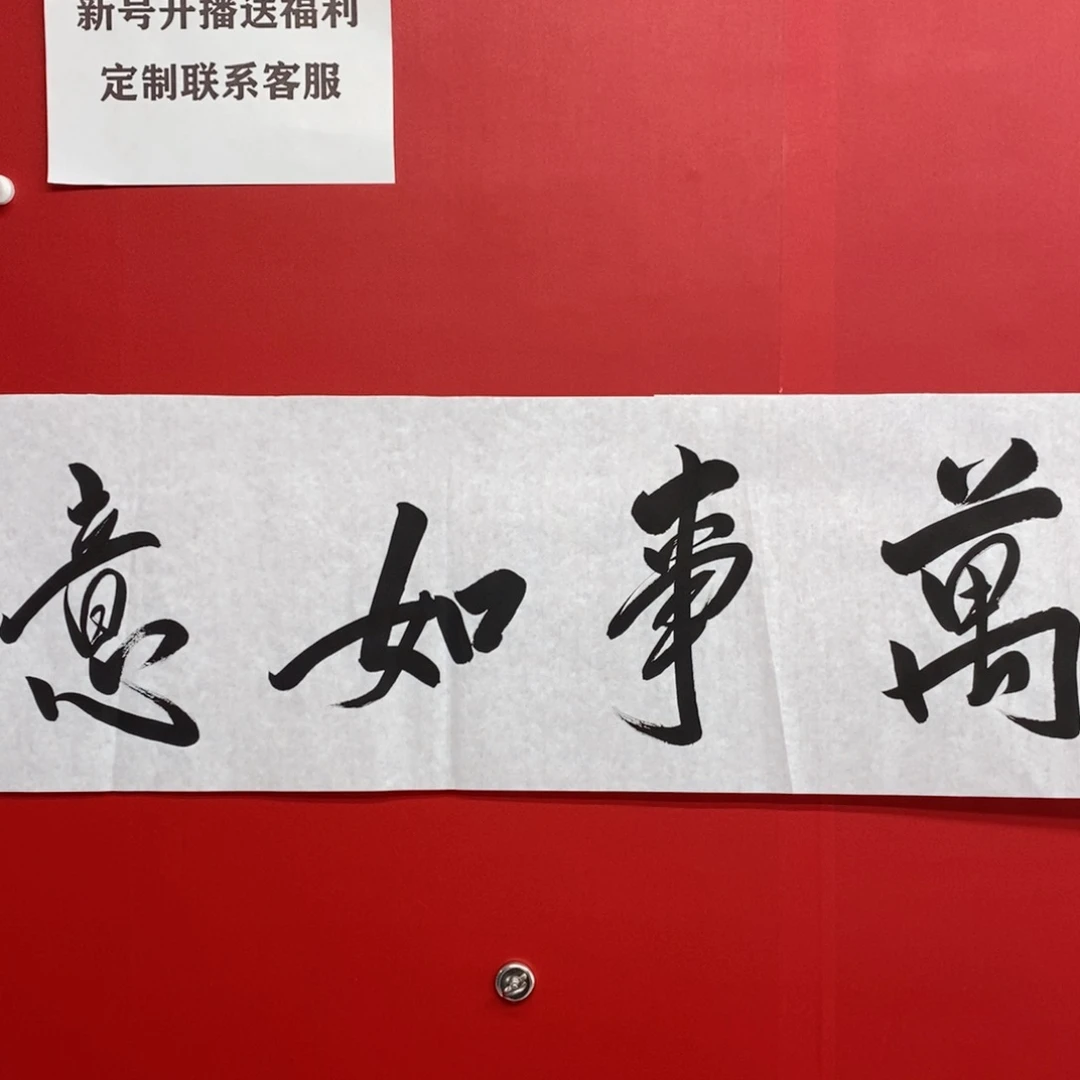 新号开播送福利
定制联系客服
萬事如意